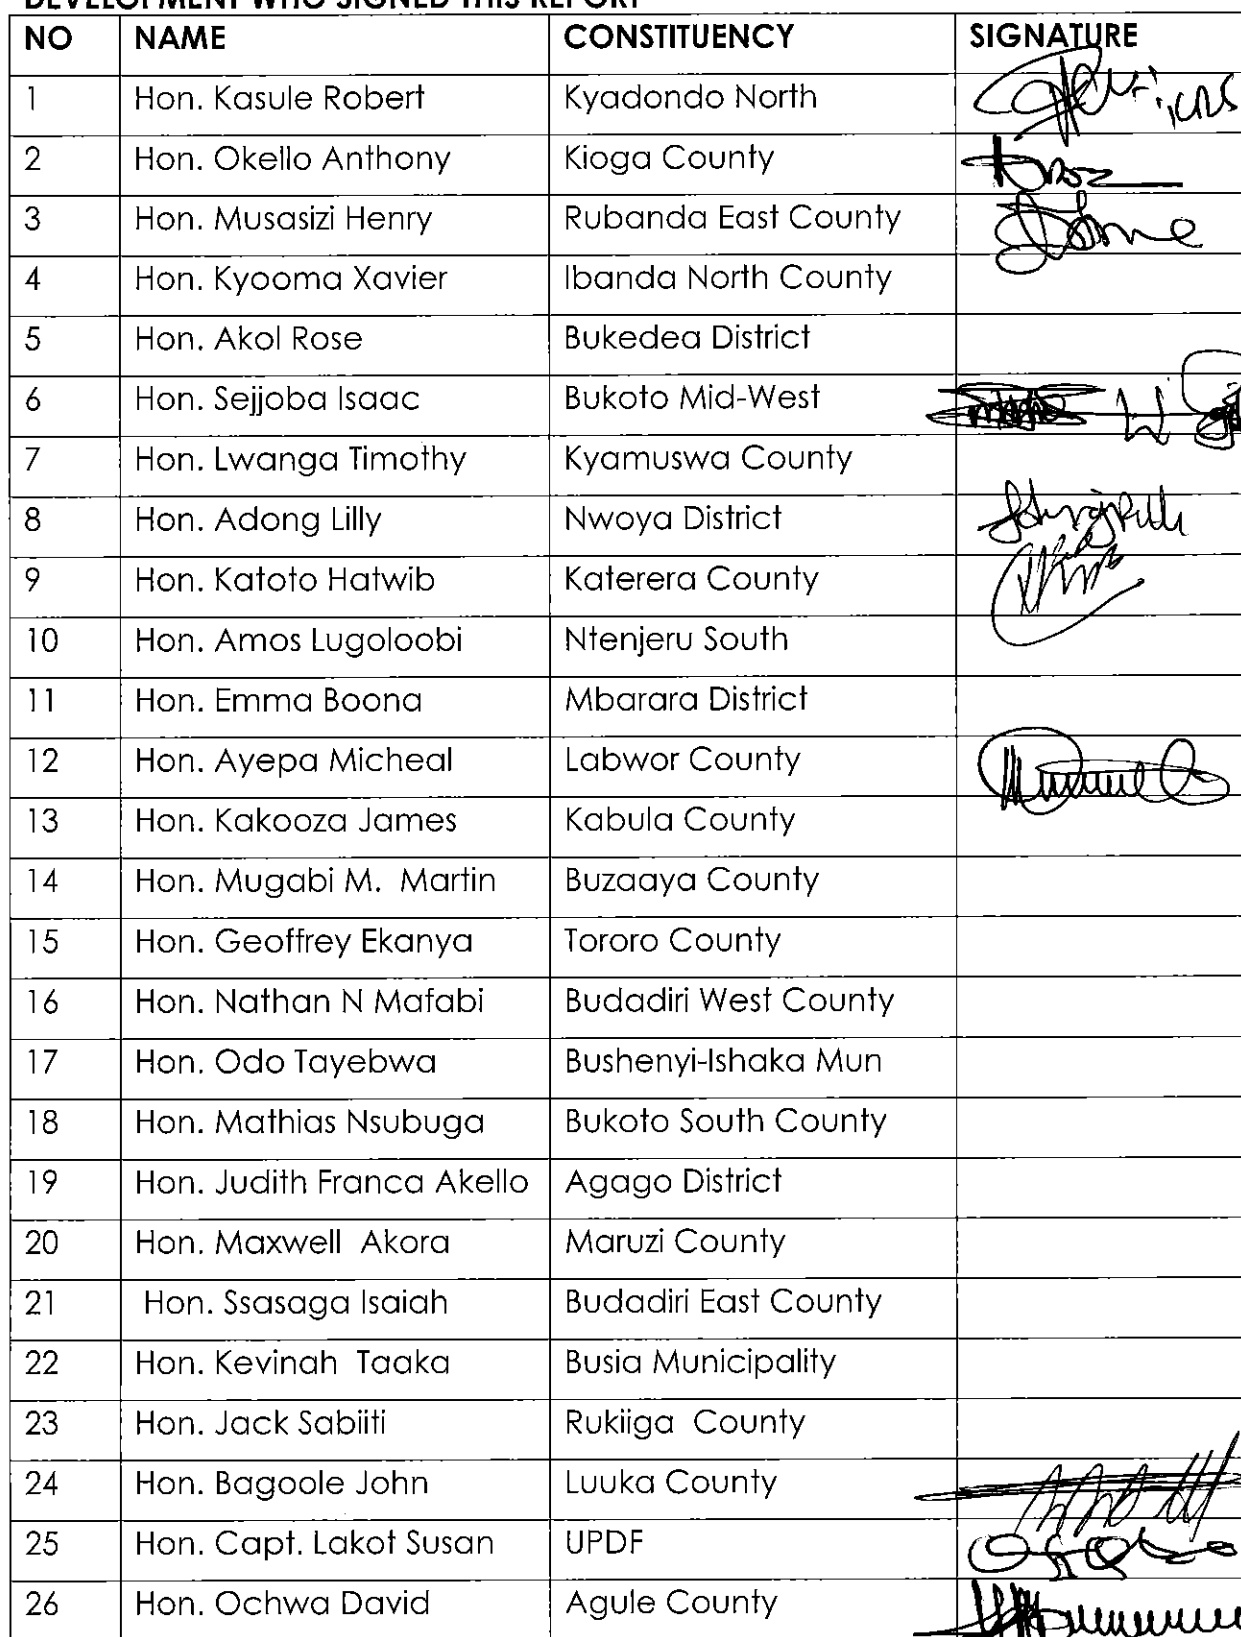 DEVELOPMENT WHO SIGNED THIS REPORT
NO NAME CONSTITUENCY SIGNATURE
1 Hon. Kasule Robert Kyadondo North
2 Hon. Okello Anthony Kioga County
3 Hon. Musasizi Henry Rubanda East County
4 Hon. Kyooma Xavier Ibanda North County
5 Hon. Akol Rose Bukedea District
6 Hon. Sejjoba Isaac Bukoto Mid-West
7 Hon. Lwanga Timothy Kyamuswa County
8 Hon. Adong Lilly Nwoya District
9 Hon. Katoto Hatwib Katerera County
10 Hon. Amos Lugoloobi Ntenjeru South
11 Hon. Emma Boona Mbarara District
12 Hon. Ayepa Micheal Labwor County
13 Hon. Kakooza James Kabula County
14 Hon. Mugabi M. Martin Buzaaya County
15 Hon. Geoffrey Ekanya Tororo County
16 Hon. Nathan N Mafabi Budadiri West County
17 Hon. Odo Tayebwa Bushenyi-Ishaka Mun
18 Hon. Mathias Nsubuga Bukoto South County
19 Hon. Judith Franca Akello Agago District
20 Hon. Maxwell Akora Maruzi County
21 Hon. Ssasaga Isaiah Budadiri East County
22 Hon. Kevinah Taaka Busia Municipality
23 Hon. Jack Sabiiti Rukiiga County
24 Hon. Bagoole John Luuka County
25 Hon. Capt. Lakot Susan UPDF
26 Hon. Ochwa David Agule County